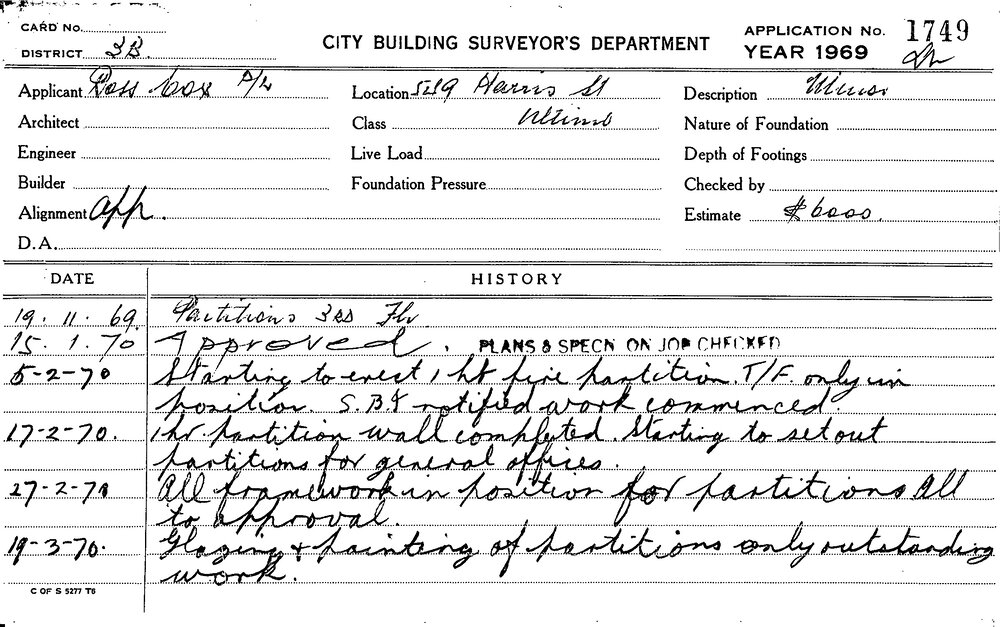 CARD No.
DISTRICT 3B.
CITY BUILDING SURVEYOR'S DEPARTMENT
APPLICATION No. 1749
YEAR 1969
Applicant Ross Cox P/L
Location 549 Harris St
Description Minor
Architect
Class Ultimo
Nature of Foundation
Engineer
Live Load
Depth of Footings
Builder
Foundation Pressure
Checked by
Alignment App.
Estimate $6000.
D.A.
DATE HISTORY
19.11.69. Partitions 3RD Flr.
15.1.70 Approved. PLANS & SPECN ON JOB CHECKED
5-2-70 Starting to erect 1 hr fire partition. T/F. only in
position. S.B.I notified work commenced.
17-2-70. 1 hr. partition wall completed. Starting to set out
partitions for general offices.
27-2-70 All framework in position for partitions All
to approval.
19-3-70. Glazing & painting of partitions only outstanding
work.
C OF S 5277 T6